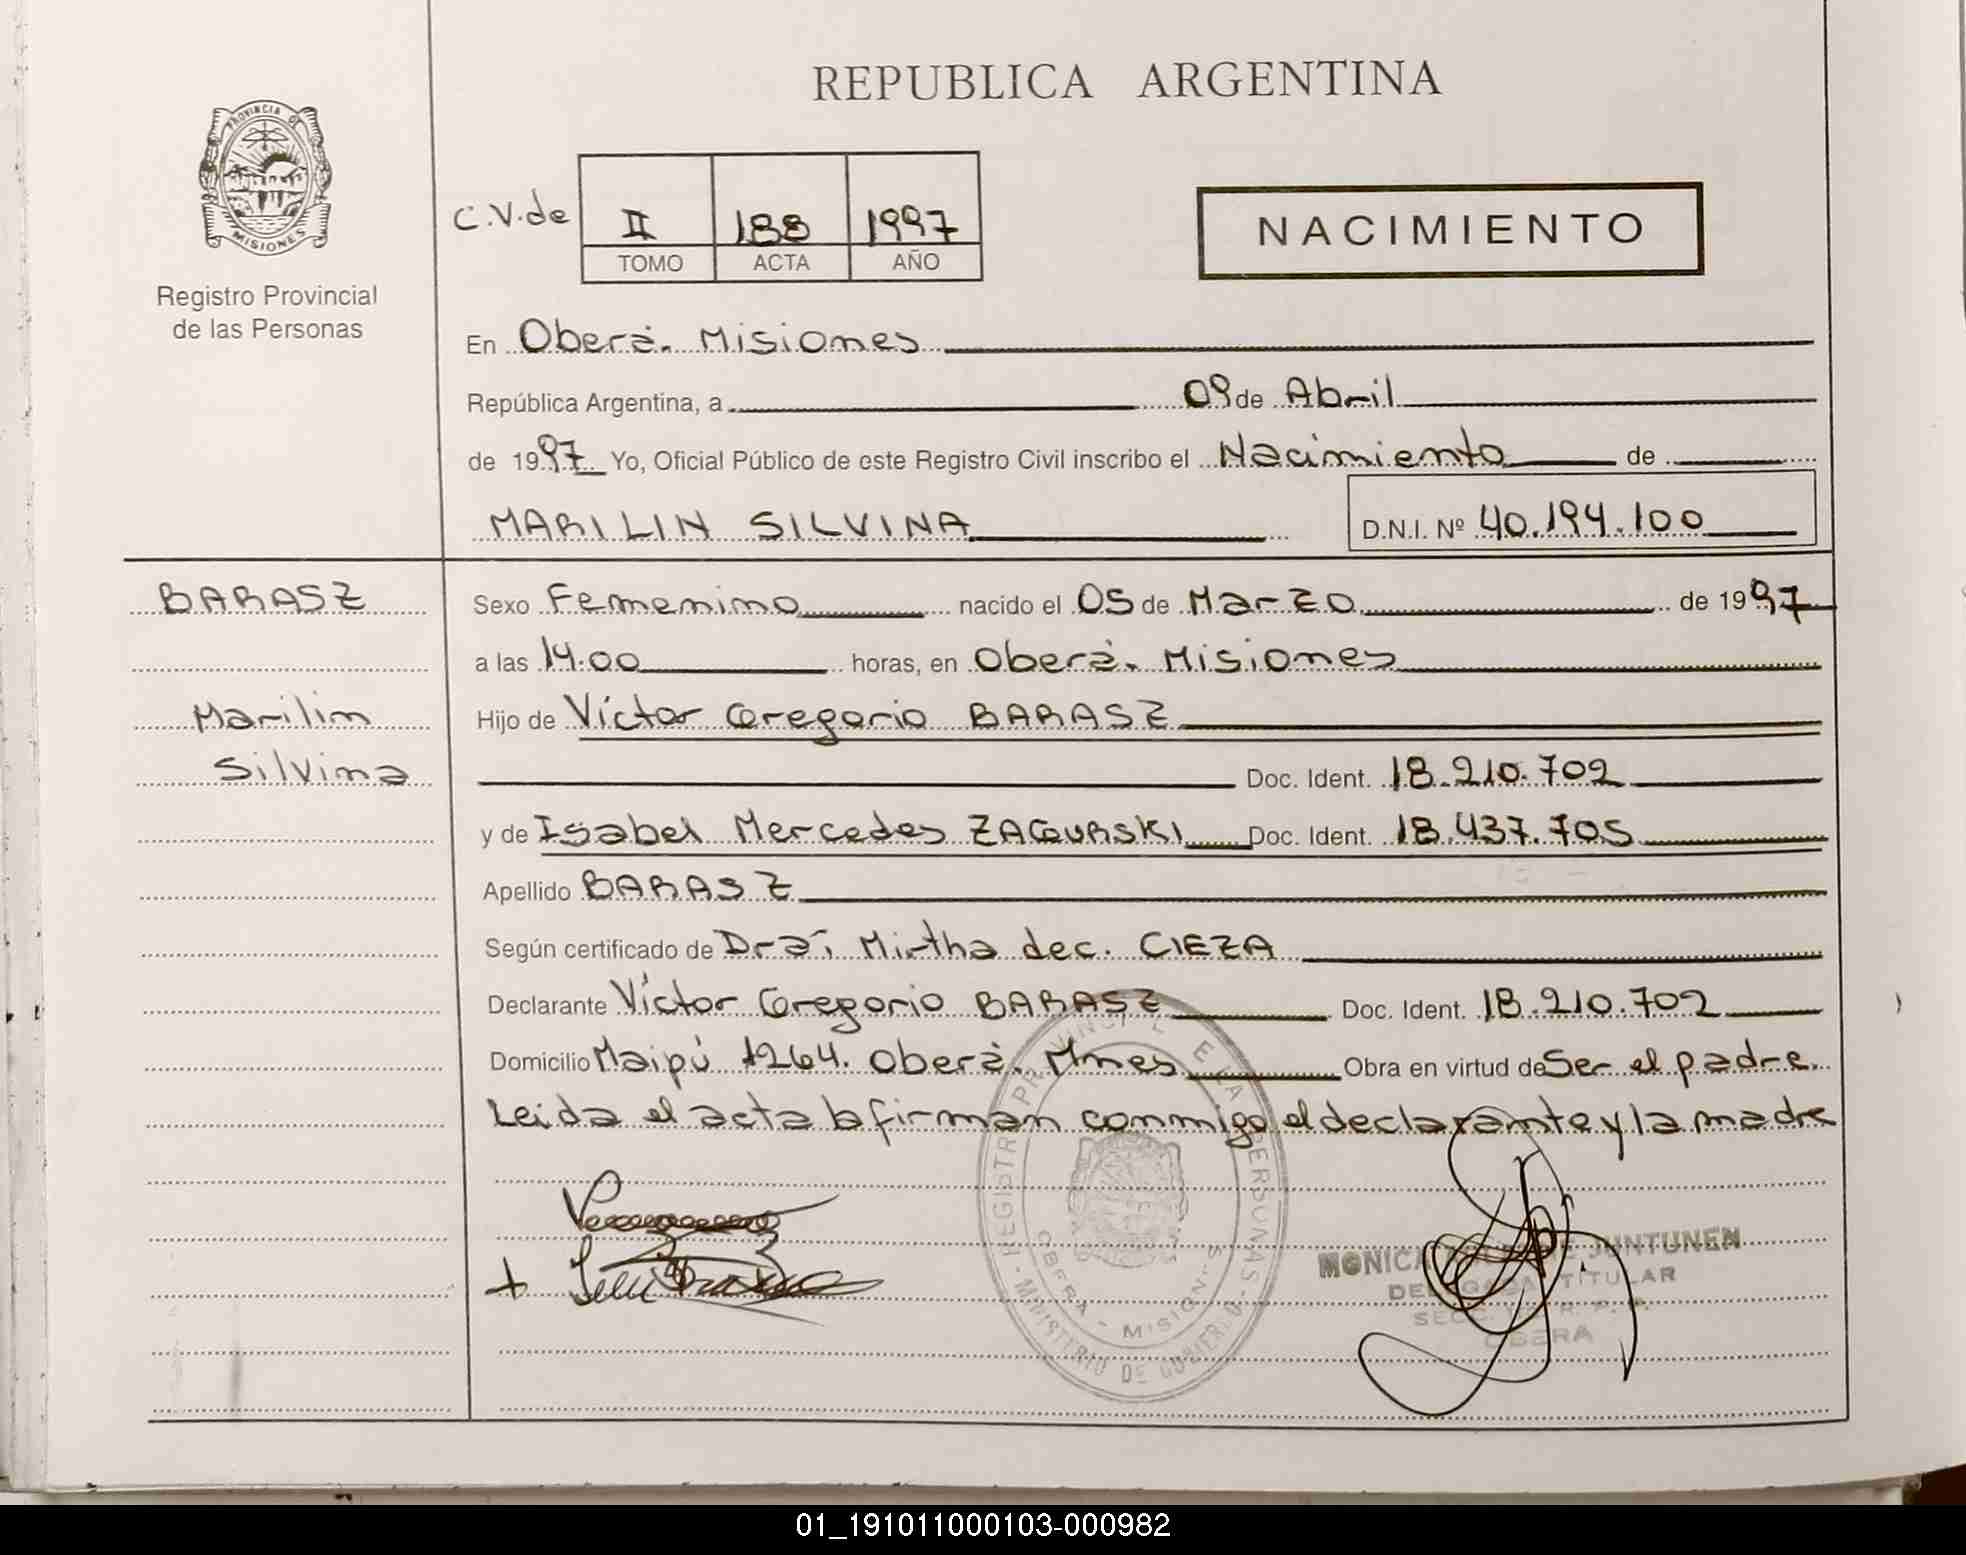 REPUBLICA ARGENTINA
PROVINCIA DE
MISIONES
Registro Provincial
de las Personas
C.V.de
II 188 1997
TOMO ACTA AÑO
NACIMIENTO
En Oberá. Misiones
República Argentina, a 09 de Abril
de 1997 Yo, Oficial Público de este Registro Civil inscribo el Nacimiento de
MARILIN SILVINA D.N.I. Nº 40.194.100
BARASZ
Marilin
Silvina
Sexo Femenino nacido el 05 de Marzo de 1997
a las 14.00 horas, en Oberá. Misiones
Hijo de Víctor Gregorio BARASZ
Doc. Ident. 18.210.702
y de Isabel Mercedes ZAGURSKI Doc. Ident. 18.437.705
Apellido BARASZ
Según certificado de Dra. Mirtha dec. CIEZA
Declarante Víctor Gregorio BARASZ Doc. Ident. 18.210.702
Domicilio Maipú 1264. Oberá. Mnes Obra en virtud de Ser el padre.
Leida el acta la firman conmigo el declarante y la madre
REGISTR PROVINCI L E LA PERSONAS
MINISTERIO DE GOBIERNO
OBERA - MISIONES
MONICA DE JUNTUNEN
DELEGADA TITULAR
OBERA
01_191011000103-000982